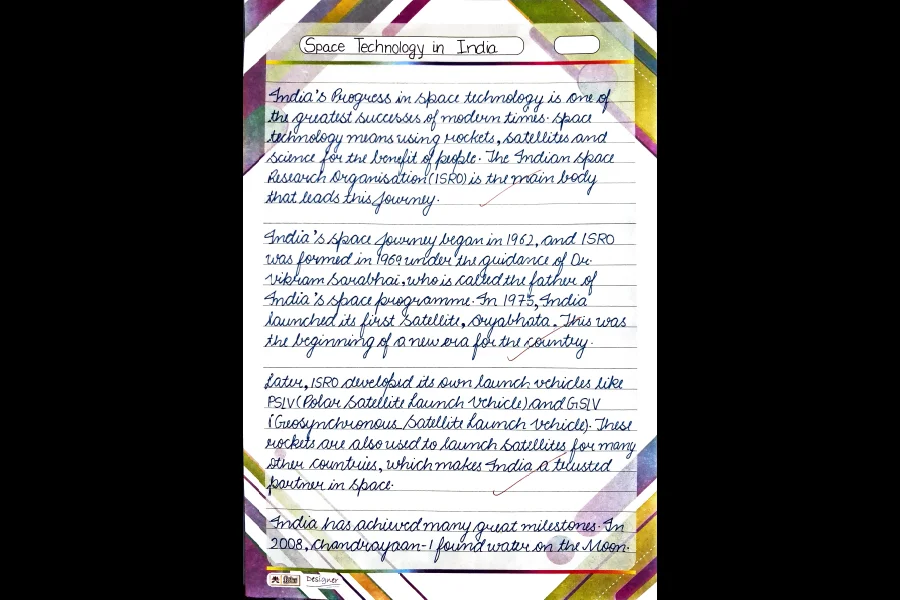 Space Technology in India
India's Progress in space technology is one of
the greatest successes of modern times. space
technology means using rockets, satellites and
science for the benefit of people. The Indian space
Research Organisation (ISRO) is the main body
that leads this journey.
India's space journey began in 1962, and ISRO
was formed in 1969 under the guidance of Dr.
Vikram Sarabhai, who is called the father of
India's space programme. In 1975, India
launched its first satellite, Aryabhata. This was
the beginning of a new era for the country.
Later, ISRO developed its own launch vehicles like
PSLV (Polar Satellite Launch Vehicle) and GSLV
(Geosynchronous Satellite Launch Vehicle). These
rockets are also used to launch satellites for many
other countries, which makes India a trusted
partner in space.
India has achieved many great milestones. In
2008, Chandrayaan-1 found water on the Moon.
Designer